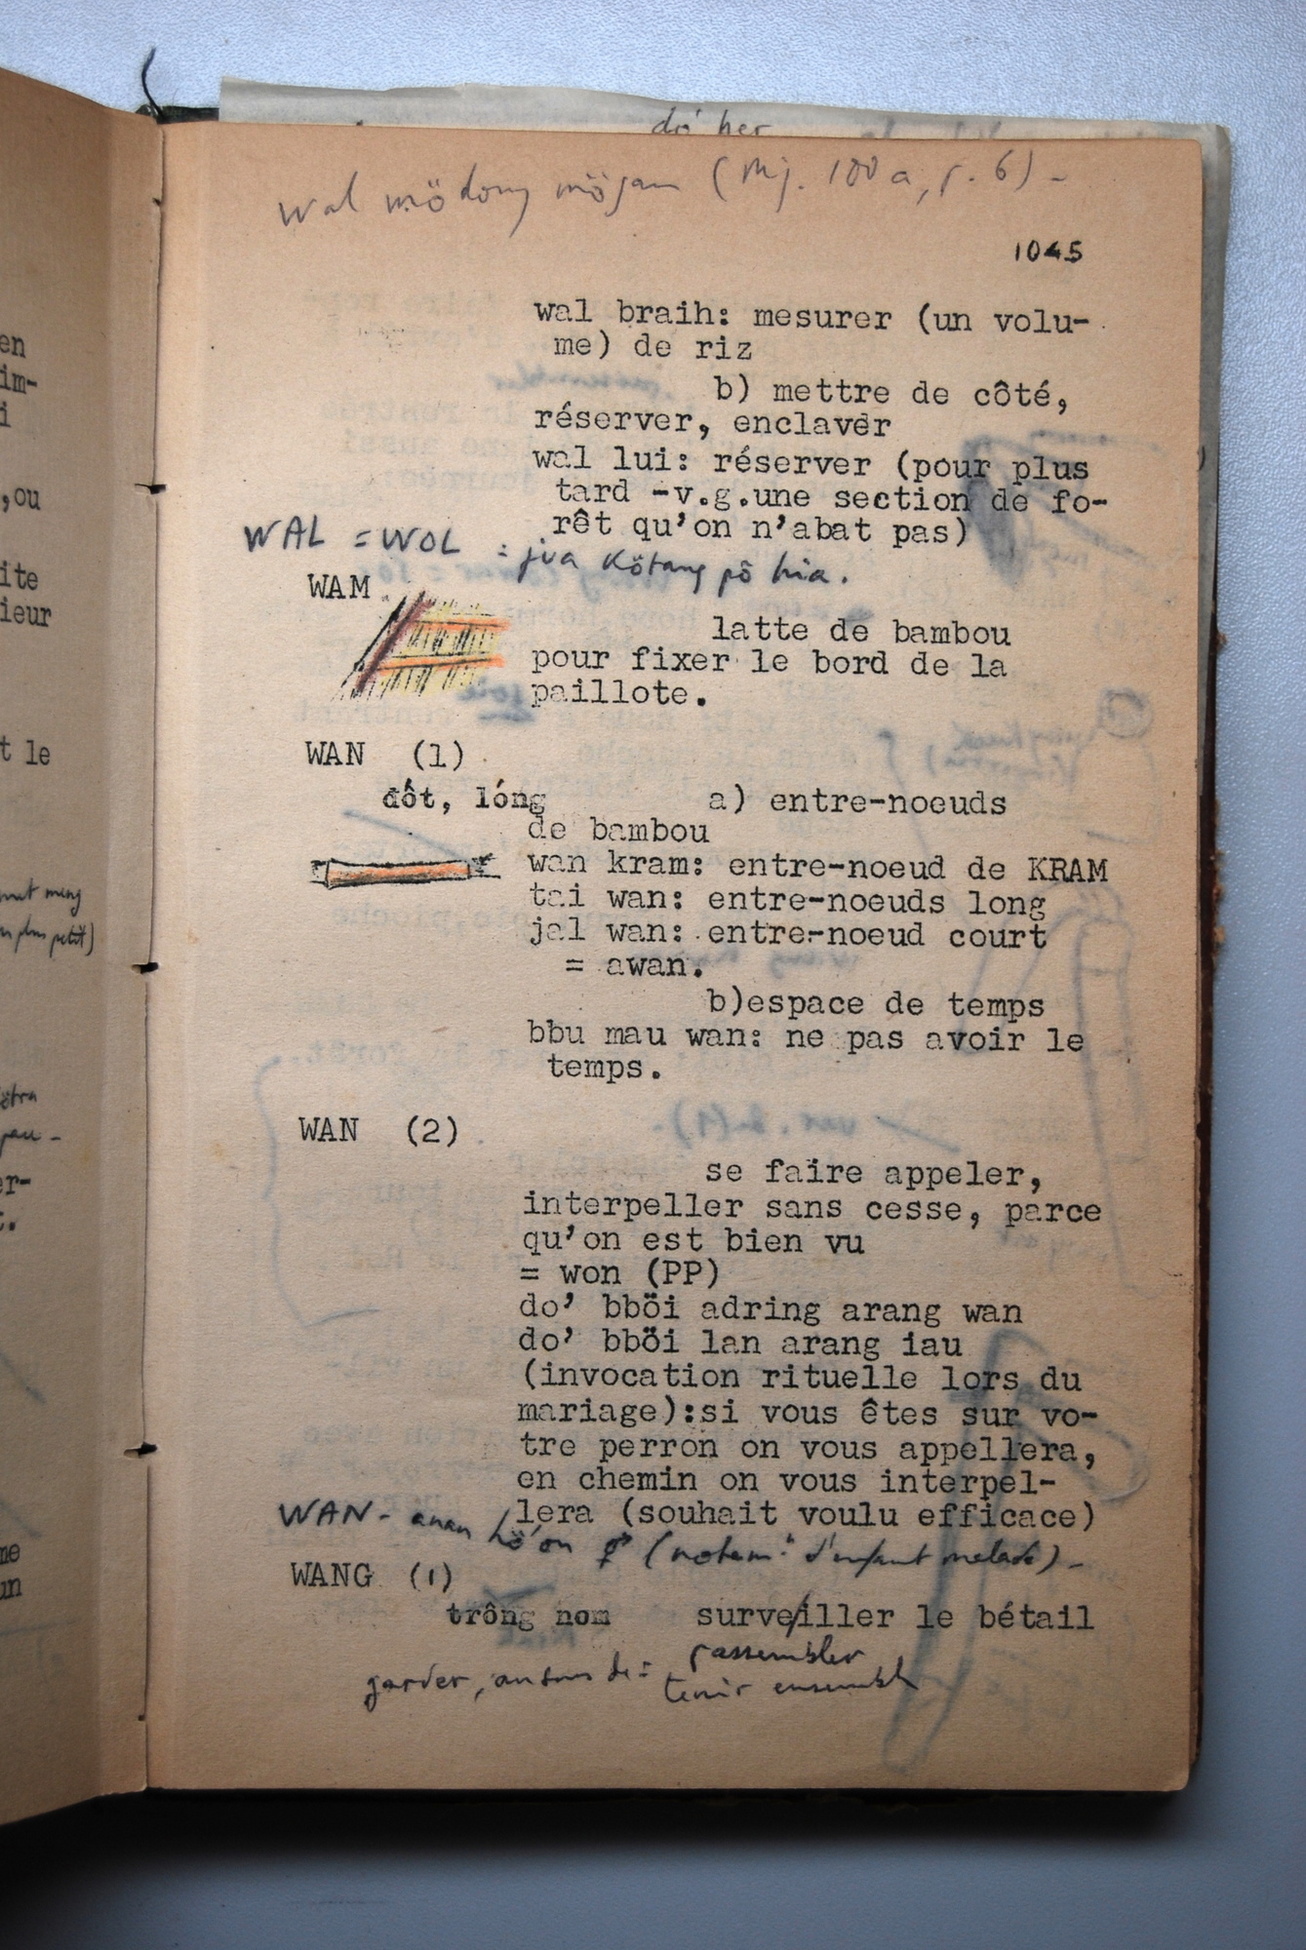 dơ̆ her
wal mödong möjam (Mj. 100 a, p. 6) -
1045
wal braih: mesurer (un volu-
me) de riz
b) mettre de côté,
réserver, enclaver
wal lui: réserver (pour plus
tard -v.g.une section de fo-
rêt qu'on n'abat pas)
WAL = WOL : jua kötang pô hia.
WAM
latte de bambou
pour fixer le bord de la
paillote.
WAN (1)
đốt, lóng a) entre-noeuds
de bambou
wan kram: entre-noeud de KRAM
tai wan: entre-noeuds long
jal wan: entre-noeud court
= awan.
b)espace de temps
bbu mau wan: ne pas avoir le
temps.
WAN (2)
se faire appeler,
interpeller sans cesse, parce
qu'on est bien vu
= won (PP)
do' bböi adring arang wan
do' bböi lan arang iau
(invocation rituelle lors du
mariage):si vous êtes sur vo-
tre perron on vous appellera,
en chemin on vous interpel-
lera (souhait voulu efficace)
WAN - anan hö'on ⚥ (notamt d'enfant malade) -
WANG (1)
trông nom surveiller le bétail
garder, autour de : rassembler
tenir ensembl
en
im-
i
,ou
ite
ieur
t le
meng
plus petit)
er-
t.
me
un